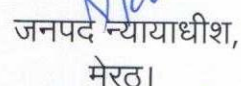 जनपद न्यायाधीश,
मेरठ।